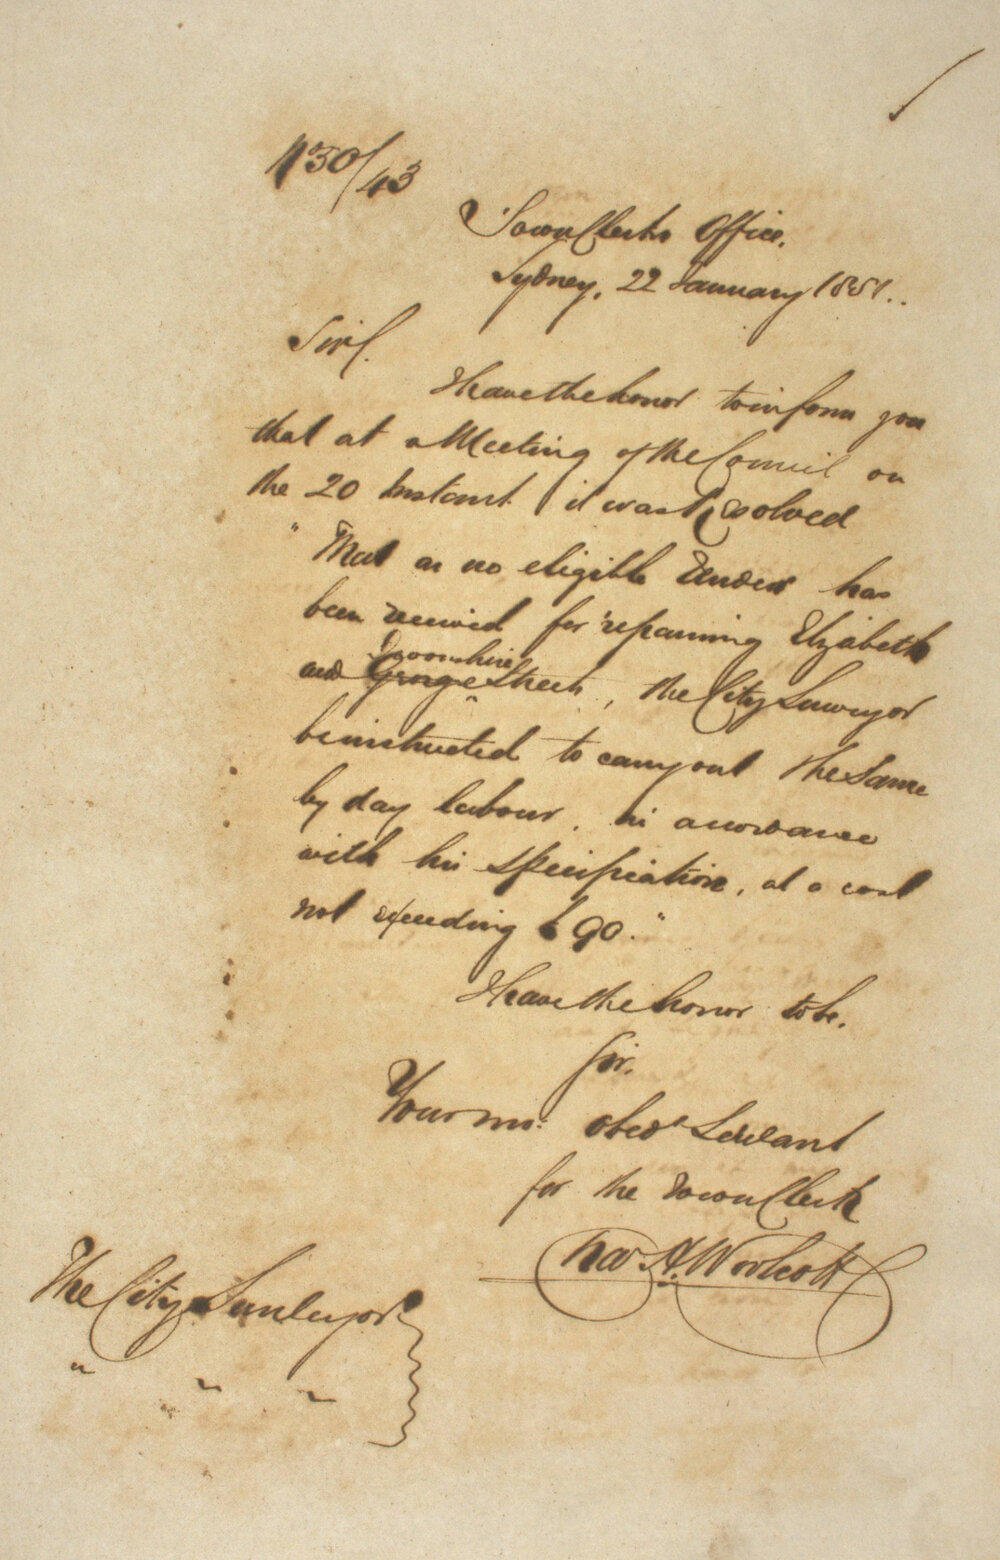 430/43
Town Clerks Office.
Sydney, 22 January 1851..
Sir/.
I have the honor to inform you
that at a Meeting of the Council on
the 20 Instant it was Resolved
"That as no eligible Tender has
been received for repairing Elizabeth
Devonshire
and George Streets, the City Surveyor
be instructed to carry out the same
by day labour, in accordance
with his specification, at a cost
not exceeding £90."
I have the honor to be.
Sir.
Your mo: obedt Servant
for the Town Clerk
Chas H. Woolcott
The City Surveyor
" " "